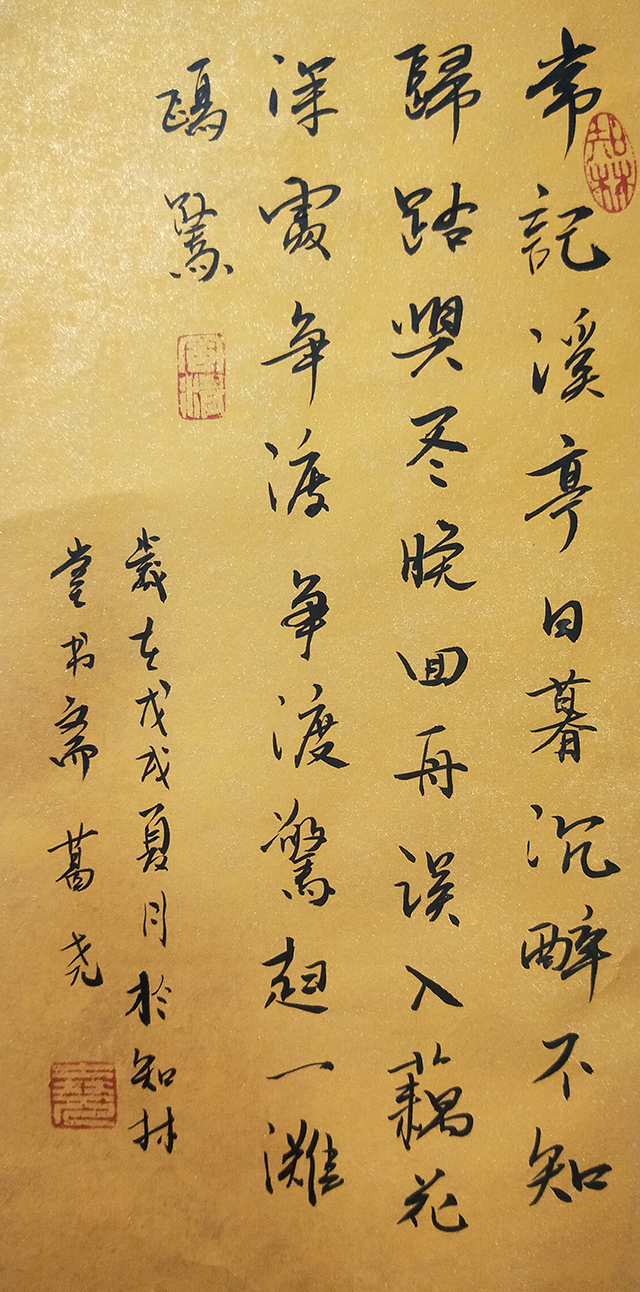 知林
常記溪亭日暮沉醉不知
歸路興尽晚回舟误入藕花
深處争渡争渡驚起一灘
鷗鷺
歲在戊戌夏月於知林
堂书斋葛尧